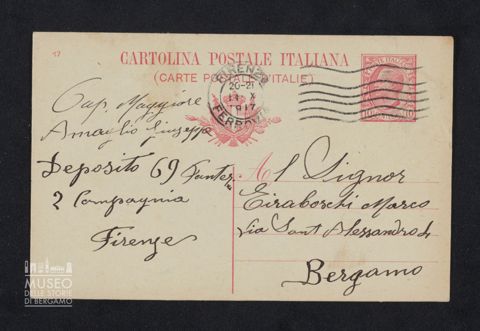 CARTOLINA POSTALE ITALIANA
(CARTE POSTALE D'ITALIE)
FIRENZE
20-21
X
1917
FERROVIA
10
Cap. Maggiore
Amaglio Giuseppe
Deposito 69 Fanter.
2 Compagnia
Firenze
Al Signor
Tiraboschi Marco
Via Sant Alessandro
Bergamo
MUSEO
DELLE STORIE
DI BERGAMO